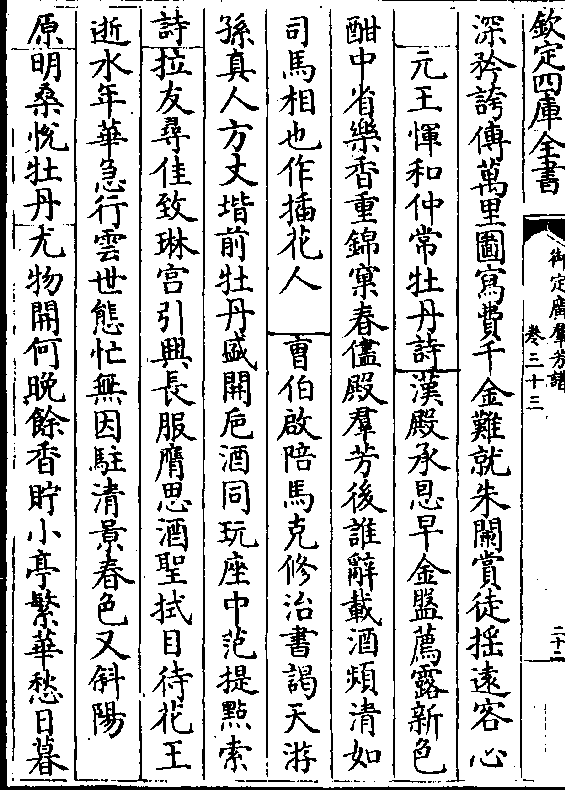 欽定四庫全書
御定廣羣芳譜
卷三十三
二十一
深矜誇傳萬里圖寫費千金難就朱闌賞徒揺遠客心
元王惲和仲常牡丹詩漢殿承恩早金盤薦露新色
酣中省樂香重錦窠春儘殿羣芳後誰辭載酒頻清如
司馬相也作插花人 曹伯啟陪馬克修治書謁天游
孫真人方丈堦前牡丹盛開巵酒同玩座中范提點索
詩拉友尋佳致琳宫引興長服膺思酒聖拭目待花王
逝水年華急行雲世態忙無因駐清景春色又斜陽
原明桑悦牡丹尤物開何晚餘香貯小亭繁華愁日暮